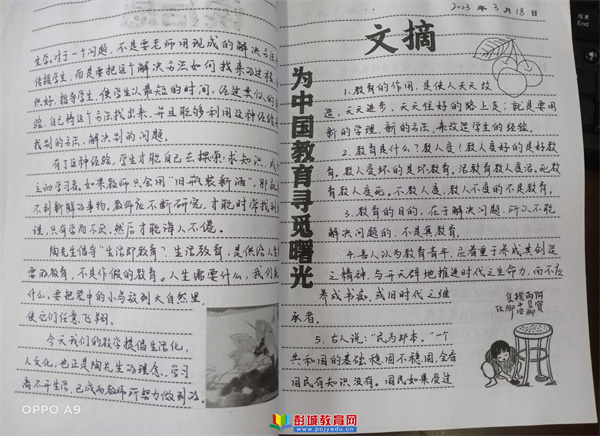 生学。对于一个问题，不是要老师用现成的解决方法
传授学生，而是要把这个解决方法如何找来的过程
供好，指导学生，使学生以最短的时间，经过类似的
验，自己将这个方法找出来，并且能够利用这种经验
找别的方法，解决别的问题。
有了这种经验，学生才能自己去探索，求知识，成
主动学习者。如果教师只会用“旧瓶装新酒”，那就
不到新鲜的事物，教师应不断研究，才能时常找到
理，只有学而不厌，然后才能诲人不倦。
陶先生倡导“生活即教育”。生活教育，是供给人生
要的教育，不是作假的教育。人生需要什么，我们
什么，要把笼中的小鸟放到大自然里，
使它们任意飞翔。
今天我们的教学提倡生活化，
人文化，也正是陶先生的理念。学习
离不开生活，已成为教师所努力做到的
为中国教育寻觅曙光
2023年3月18日
文摘
1.教育的作用，是使人天天改
造，天天进步，天天往好的路上走；就是要用
新的学理，新的方法，来改造学生的经验。
2.教育是什么？教人变！教人变好的是好教
育，教人变坏的是坏教育。活教育教人变活。死教
育教人变死。不教人变，教人不变的不是教育。
3.教育的目的，在于解决问题，所以不能
解决问题的，不是真教育。
4.吾人认为教育青年，应着重于养成其创造
之精神，与开天辟地推进时代之生命力，而不应
养成书痴，或旧时代之继
承者。
5.古人说：“民为邦本。”一个
共和国的基础稳固不稳固，全看
国民有知识没有。国民如果受过
OPPO A9
彭城教育网
www.pcjyedu.cn